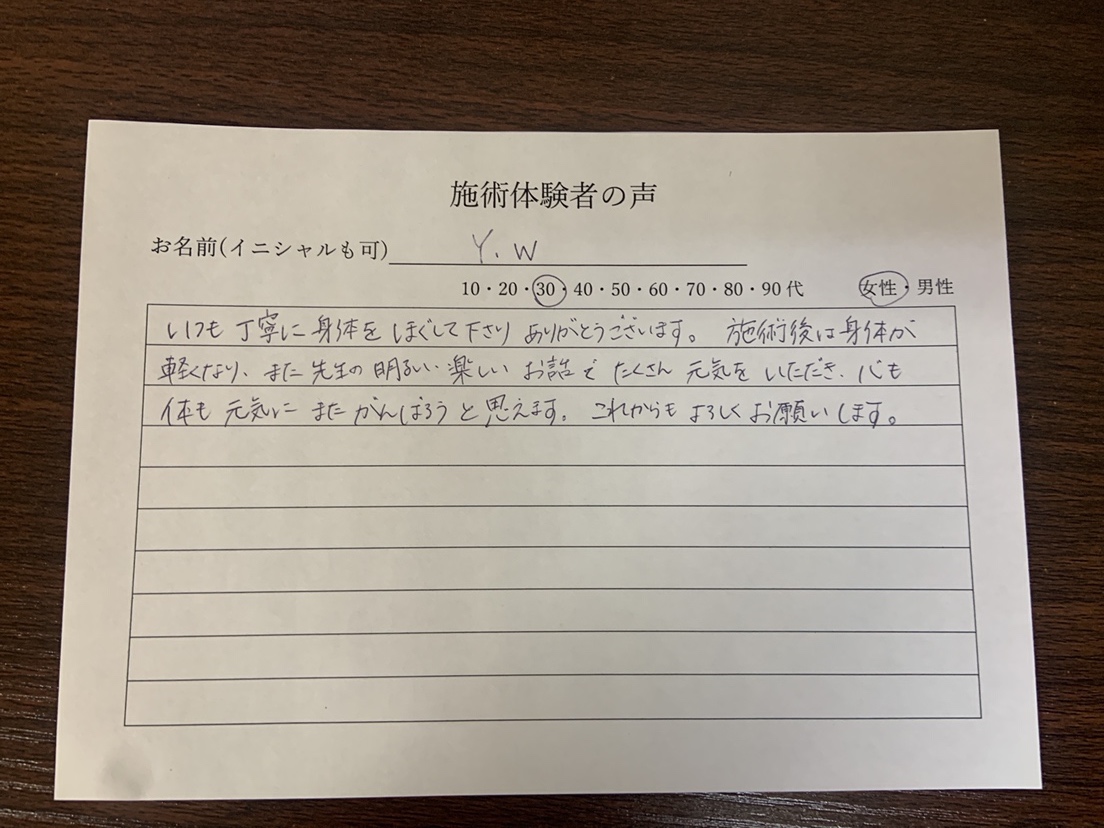 施術体験者の声
お名前(イニシャルも可) Y.W
10・20・30・40・50・60・70・80・90代 女性・男性
いつも丁寧に身体をほぐして下さりありがとうございます。施術後は身体が
軽くなり、また先生の明るい楽しいお話でたくさん元気をいただき、心も
体も元気にまたがんばろうと思えます。これからもよろしくお願いします。